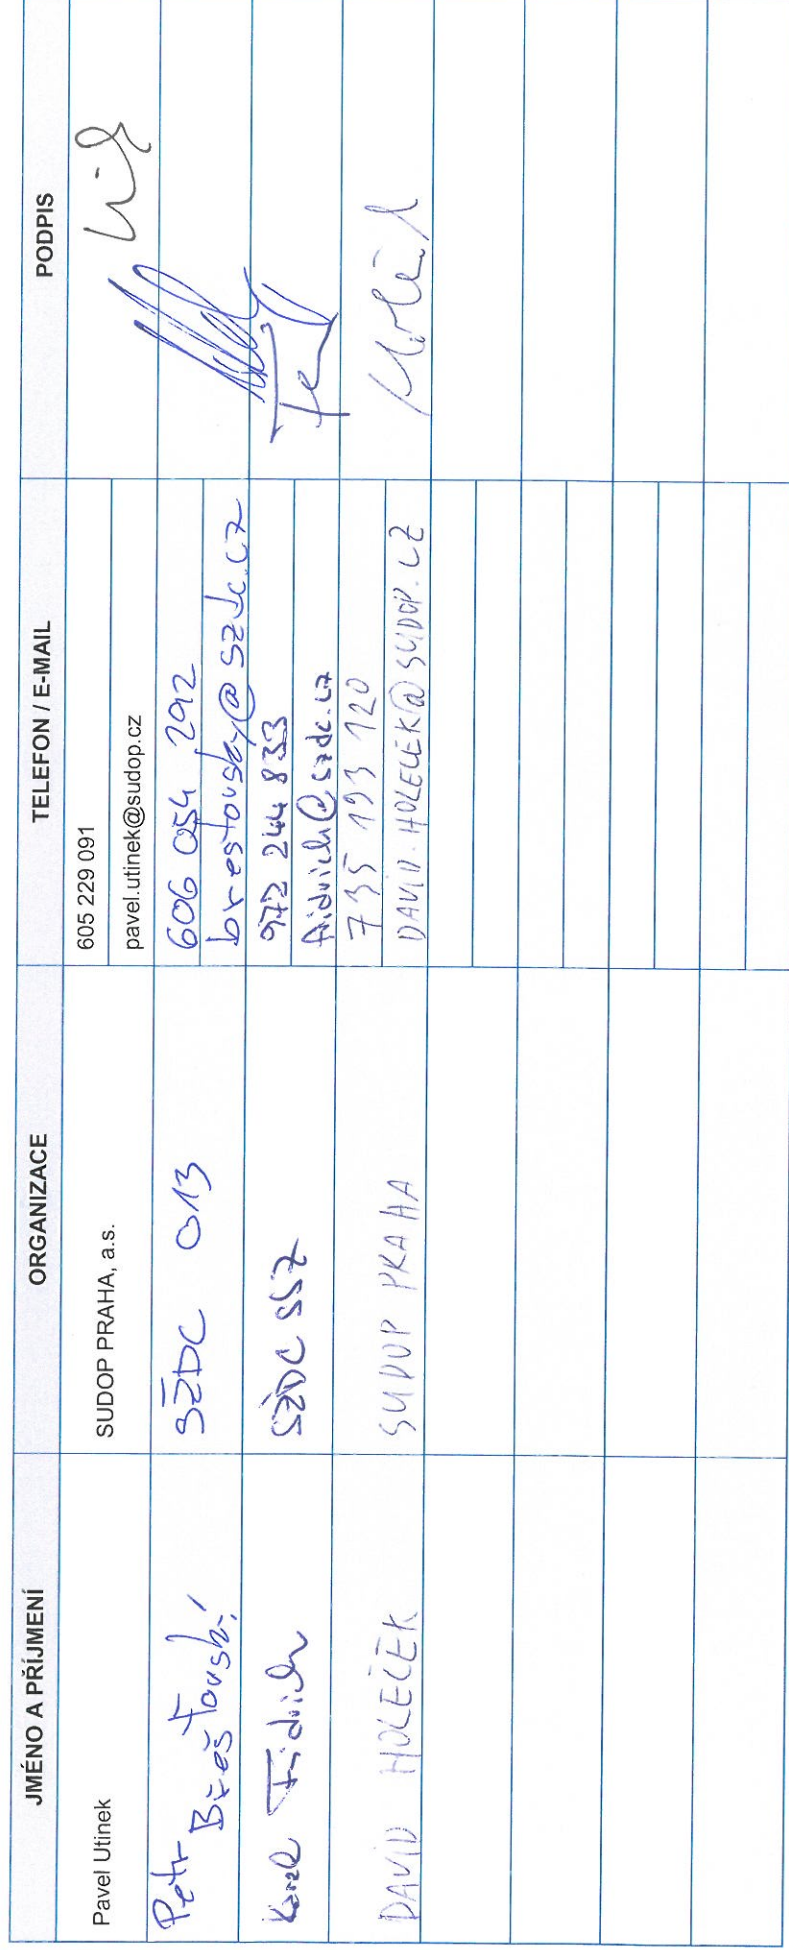 JMÉNO A PŘÍJMENÍ ORGANIZACE TELEFON / E-MAIL PODPIS
Pavel Utinek SUDOP PRAHA, a.s. 605 229 091
pavel.utinek@sudop.cz
Petr Břešťovský SŽDC O13 606 054 292
brestovsky@szdc.cz
Karel Fridrich SŽDC SSZ 972 244 833
fridrich@szdc.cz
DAVID HOLEČEK SUDOP PRAHA 735 193 120
DAVID.HOLECEK@SUDOP.CZ